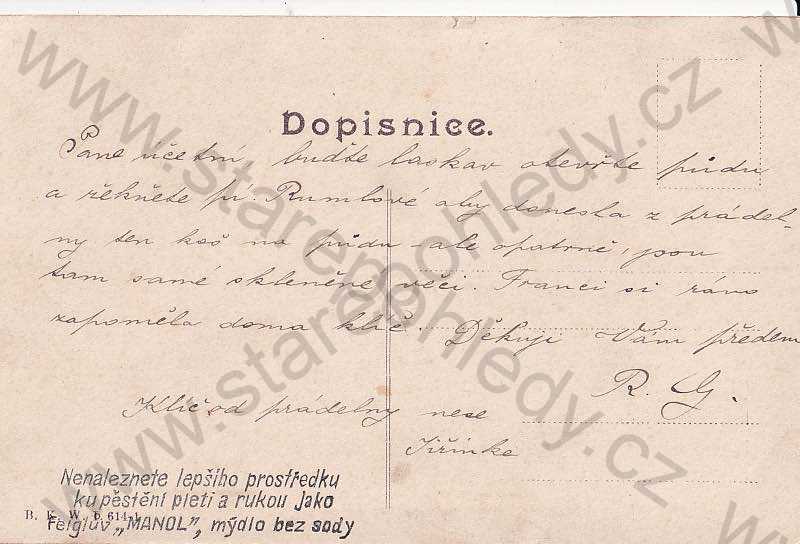 Dopisnice.
Pane účetní, buďte laskav otevřte půdu
a řekněte pí. Rumlové aby donesla z prádel-
ny ten koš na půdu - ale opatrně, jsou
tam samé skleněné věci. Franci si ráno
zapoměla doma klíč. Děkuji Vám předem
R. G.
Klíč od prádelny nese
Jiřinka
Nenaleznete lepšího prostředku
ku pěstění pleti a rukou jako
B. K. W. b. 614-1
Feiglův „MANOL", mýdlo bez sody
www.starepohledy.cz
www.starepohledy.cz